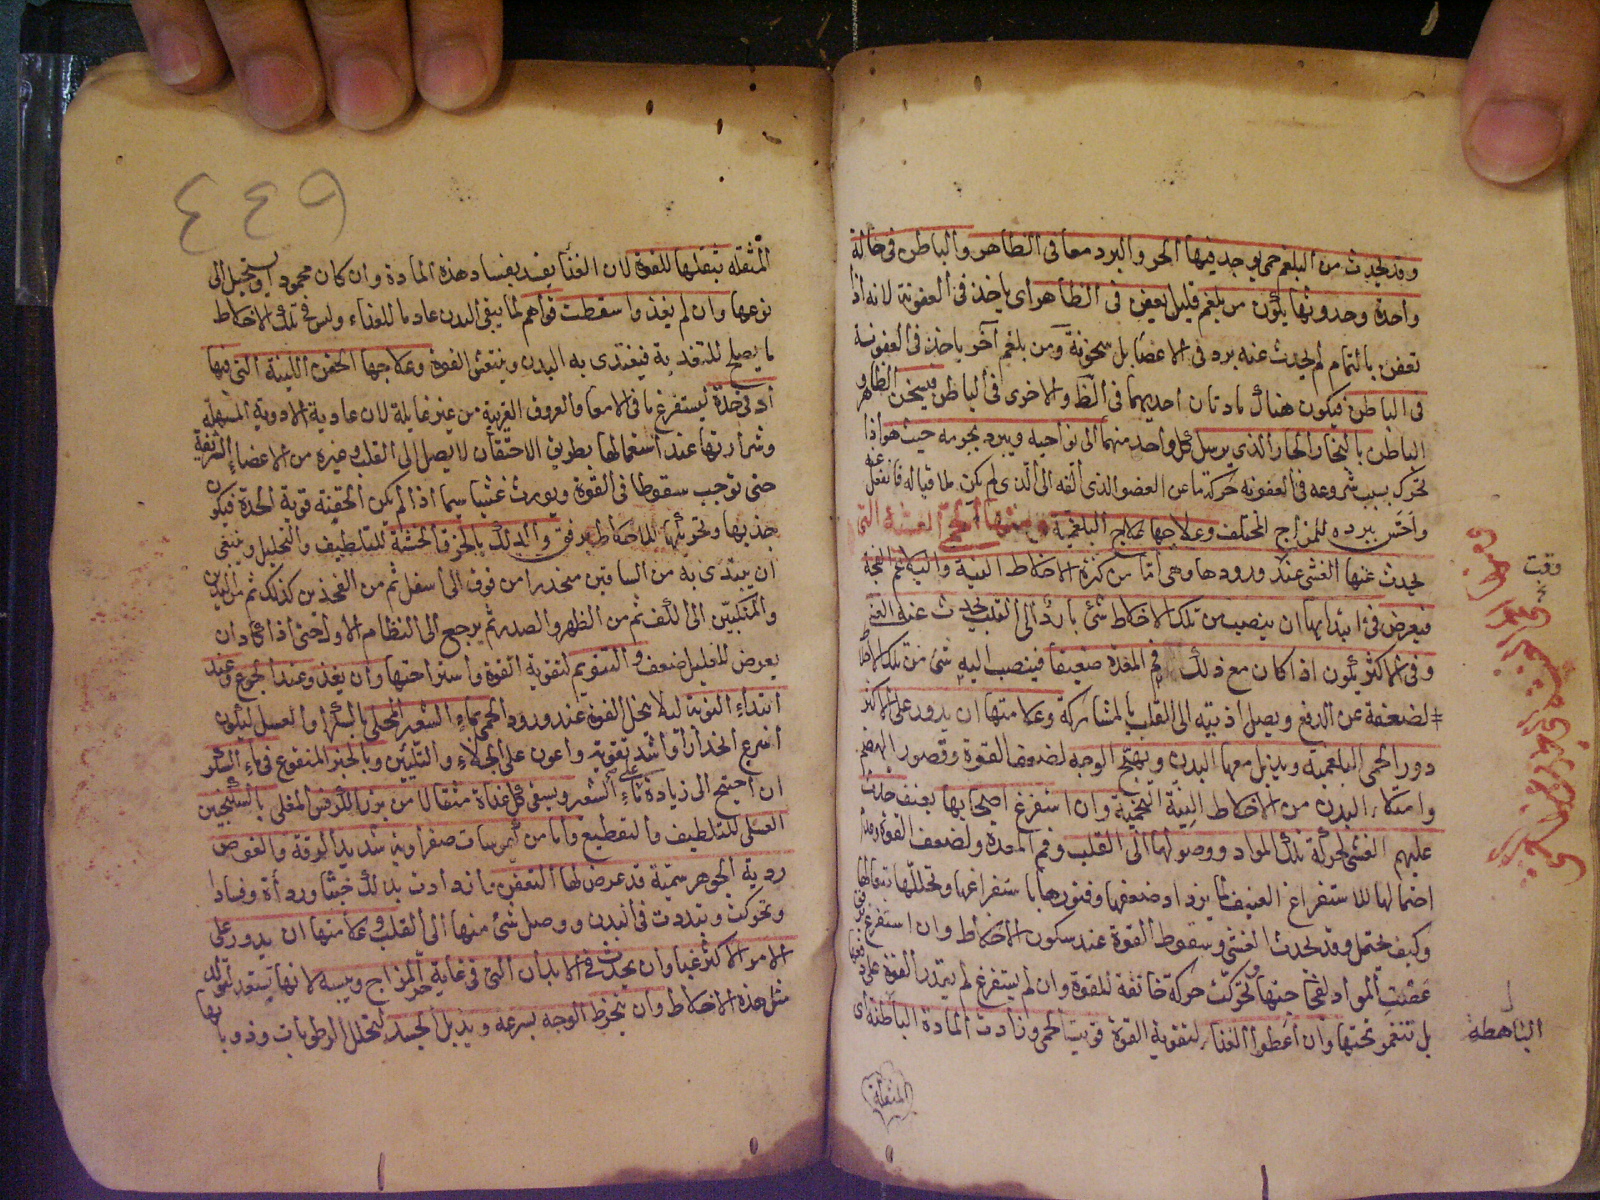 وقد يحدث من البلغم حمى يوجد فيها الحر والبرد معا فى الظاهر والباطن فى حالة
واحدة وحدوثها يكون من بلغم قليل يعفن فى الظاهر اى ياخذ فى العفونة لانه اذا
تعفن بالتمام لم يحدث عنه برد فى الاعضا بل سخونة ومن بلغم آخر ياخذ فى العفونة
فى الباطن فيكون هناك مادتان احديهما فى الظ والاخرى فى الباطن فيسخن الظاهر و
الباطن بالبخار الحار الذى يرسل كل واحد منهما الى نواحيه ويبرد بجرمه حيث هو اذا
تحرك بسبب شروعه فى العفونة حركة ما عن العضو الذى الفه الى الذى لم يكن ملاقيا له فانفعل عنه
واحس ببرده للمزاج المختلف وعلاجها علاج البلغمية ومنها الحمى الغشية التى
يحدث عنها الغشى عند ورودها وهى اما من كثرة الاخلاط النية والبلاغم الفجة
فيعرض فى ابتدايها ان ينصب من تلك الاخلاط شئ بارد الى القلب يحدث عنه الغشى
وفى الاكثر يكون اذا كان مع ذلك فم المعدة ضعيفا فينصب اليه شئ من تلك الاخلاط
لضعفه عن الدفع ويصل اذيته الى القلب بالمشاركة وعلامتها ان يدور على الاكثر
دور الحمى البلغمية ويذبل معها البدن ويهيج الوجه لضعف القوة وقصور الهضم
وامتلاء البدن من الاخلاط النية الفجية وان استفرغ اصحابها بعنف حدث
عليهم الغشى لحركة تلك المواد ووصولها الى القلب وفم المعدة ولضعف القوة وعدم
احتمالها للاستفراغ العنيف لما يزداد ضعفها وفتورها باستفراغها وتحللها
وكيف تحتمل وقد يحدث الغشى وسقوط القوة عند سكون الاخلاط وان استفرغ
عصت المواد لفجاجتها وتحركت حركة خانقة للقوة وان لم يستفرغ لم يقدر القوة على دفعها
بل تنغمر تحتها وان اعطوا الغذاء لتقوية القوة قويت الحمى وزادت المادة الباطنة اى
المثقلة
وقت
الباهظة
٤٤٩
المثقلة بثقلها للقوة لان الغذا يفسد بفساد هذه المادة وان كان محمودا ويستحيل الى
نوعها وان لم يغذوا سقطت قواهم لما يبقى البدن عادما للغذاء وليس فى تلك الاخلاط
ما يصلح للتغذية فيغتذى به البدن وينتعش القوة وعلاجها الحقن اللينة التى فيها
ادنى حدة ليستفرغ ما فى الامعا والعروق القريبة من غير غايلة لان عادية الادوية المسهلة
وشرارتها عند استعمالها بطريق الاحتقان لا يصل الى القلب وغيره من الاعضاء الشريفة
حتى يوجب سقوطا فى القوة ويورث غشيا سيما اذا لم يكن الحقنة قوية الحدة فيكون
جذبها وتحريكها للاخلاط برفق والدلك بالخرق الخشنة للتلطيف والتحليل وينبغى
ان يبتدى به من الساقين منحدرا من فوق الى اسفل ثم من الفخذين كذلك ثم من اليدين
والمنكبين الى الكف ثم من الظهر والصدر ثم يرجع الى النظام الاول حتى اذا كاد ان
يعرض للعليل ضعف والتنويم لتقوية القوة واستراحتها وان يغذو عند الجوع وعند
ابتداء النوبة ليلا تخل القوة عند ورود الحمى بماء الشعير المحلى بالسكر او العسل ليكون
اسرع انحدارا واشد تقوية واعون على الجلاء والتليين وبالخبز المنقوع فى ماء السكر
ان احتيج الى زيادة على ماء الشعير ويسقى كل غداة مثقالا من بزر الكرفس المغلى بالسكنجبين
العسلى للتلطيف والتقطيع واما من كيموسات صفراوية شديدة الرقة والغوص
ردية الجوهر سمية قد عرض لها التعفن فازدادت بذلك خبثا ورداءة وفسادا
وتحركت وتبددت فى البدن ووصل شئ منها الى القلب وعلامتها ان يدور على
الامر الاكثر غبا وان يحدث فى الابدان التى فى غاية حر المزاج ويبسه لانها يستعد لتولد
مثل هذه الاخلاط وان ينخرط الوجه بسرعة ويذبل الجسد لتحلل الرطوبات وذوبانها